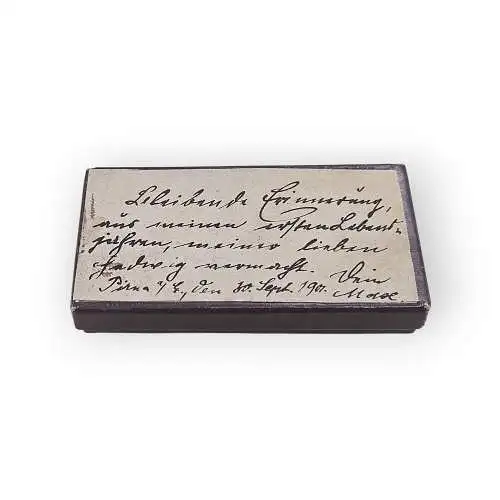 Bleibende Erinnerung,
aus meinen ersten Lebens-
jahren, meiner lieben
Hedwig vermacht. Dein
Pirna a/E, den 30. Sept. 190. Max.